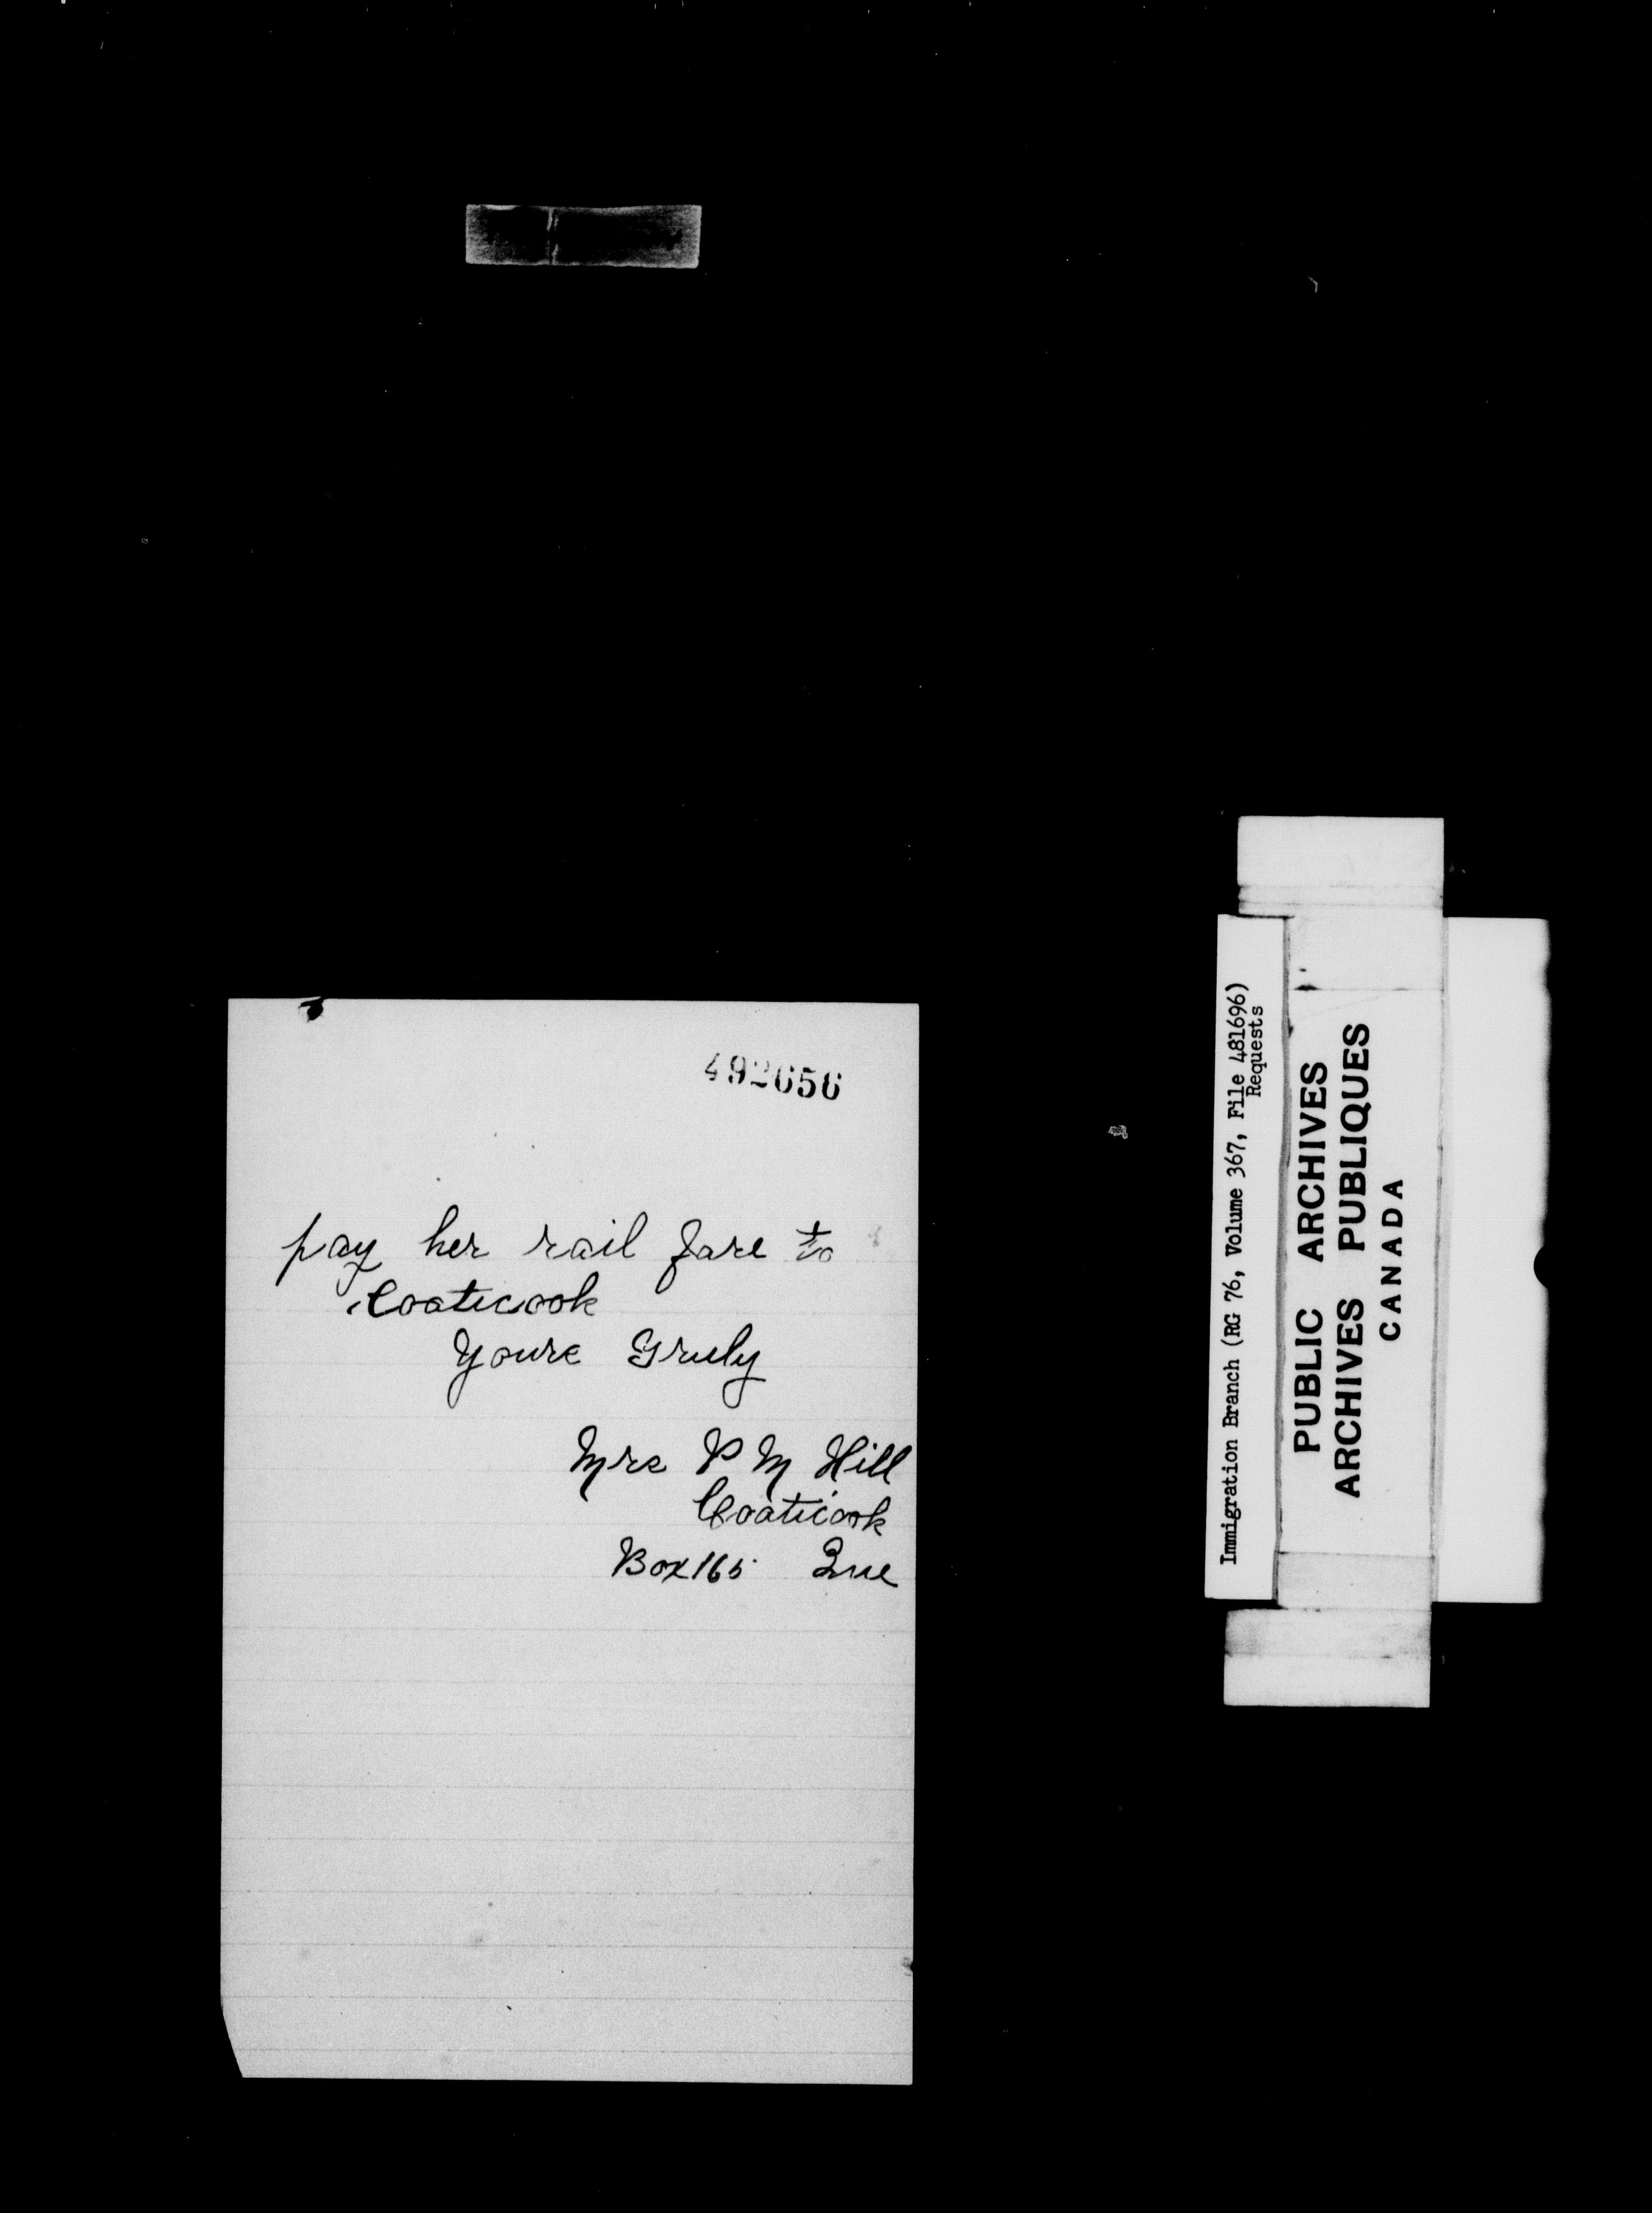 492656
pay her rail fare to
Coaticook
Yours Truly
Mrs P M Hill
Coaticook
Box 165 Que
Immigration Branch (RG 76, Volume 367, File 481696)
Requests
PUBLIC ARCHIVES
ARCHIVES PUBLIQUES
CANADA